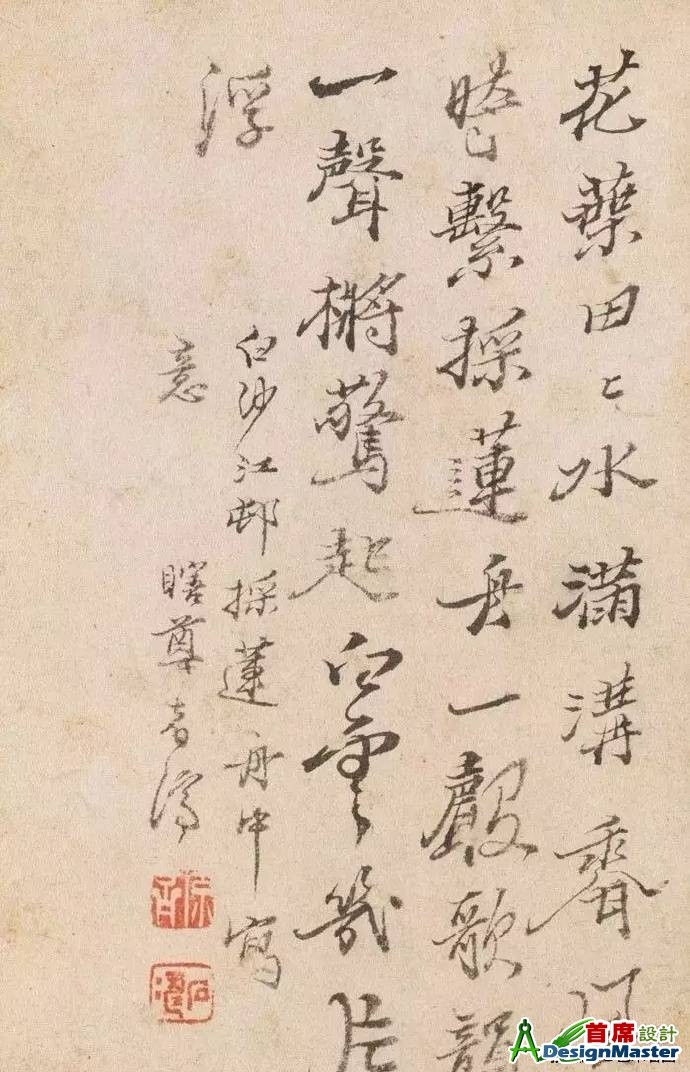 花葉田〻水滿溝香
繫採蓮舟一聲歌韻
一聲槳驚起白雲幾片
浮
白沙江邨採蓮舟中寫
意
瞎尊者濟
石濤
首席設計
DesignMaster